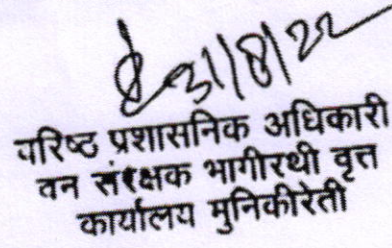 31/8/22
वरिष्ट प्रशासनिक अधिकारी
वन संरक्षक भागीरथी वृत्त
कार्यालय मुनिकीरेती